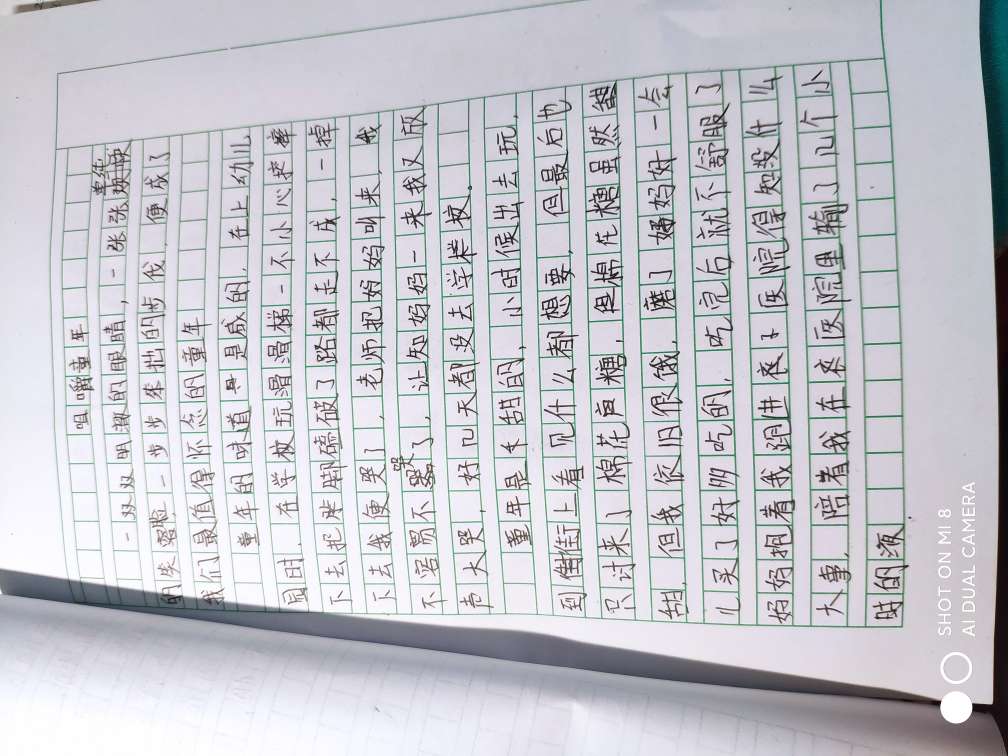 咀嚼童年
一双双明澈的眼睛，一张张单纯
的笑脸，一步步笨拙的步伐，便成了
我们最值得怀念的童年
童年的味道是咸的，在上幼儿
园时，在学校玩滑滑梯一不小心摔
下去把脚磕破了路都走不成，一摔
下去我便哭了，老师把妈妈叫来，我
不容易不哭了，让知妈妈一来我又放
声大哭，好几天都没去学校。
童年是甜的，小时候出去玩，
到街上看见什么都想要，但最后也
只讨来了棉花糖，但棉花糖虽然
甜，但我依旧很饿，磨了妈妈好一会
儿买了好多吃的，吃完后就不舒服了
妈妈抱着我跑进医院得知没什么
大事，陪着我在医院里输了几个小
时的液
SHOT ON MI 8
AI DUAL CAMERA